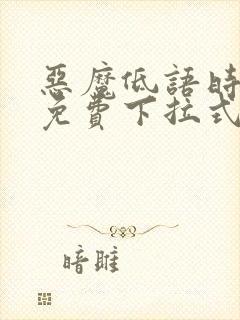 惡魔低語時
免費下拉式
暗雎